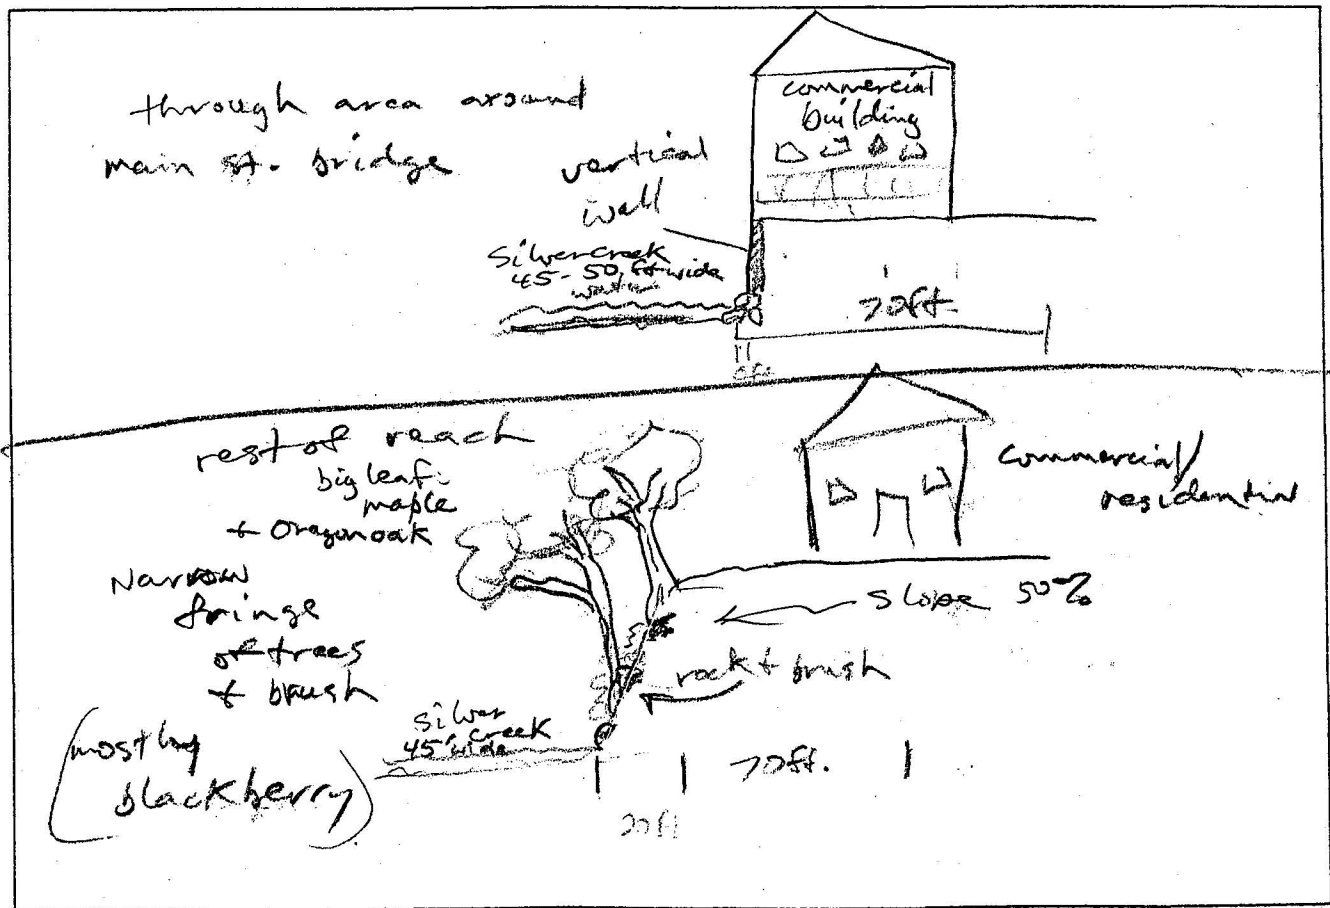 through area around
main st. bridge
commercial
building
vertical
wall
Silver Creek
45-50 ft wide
water
70ft.
rest of reach
big leaf
maple
+ Oregon oak
commercial/
residential
Narrow
fringe
of trees
+ brush
(mostly
blackberry)
slope 50%
rock + brush
silver
creek
45' wide
70ft.
20ft